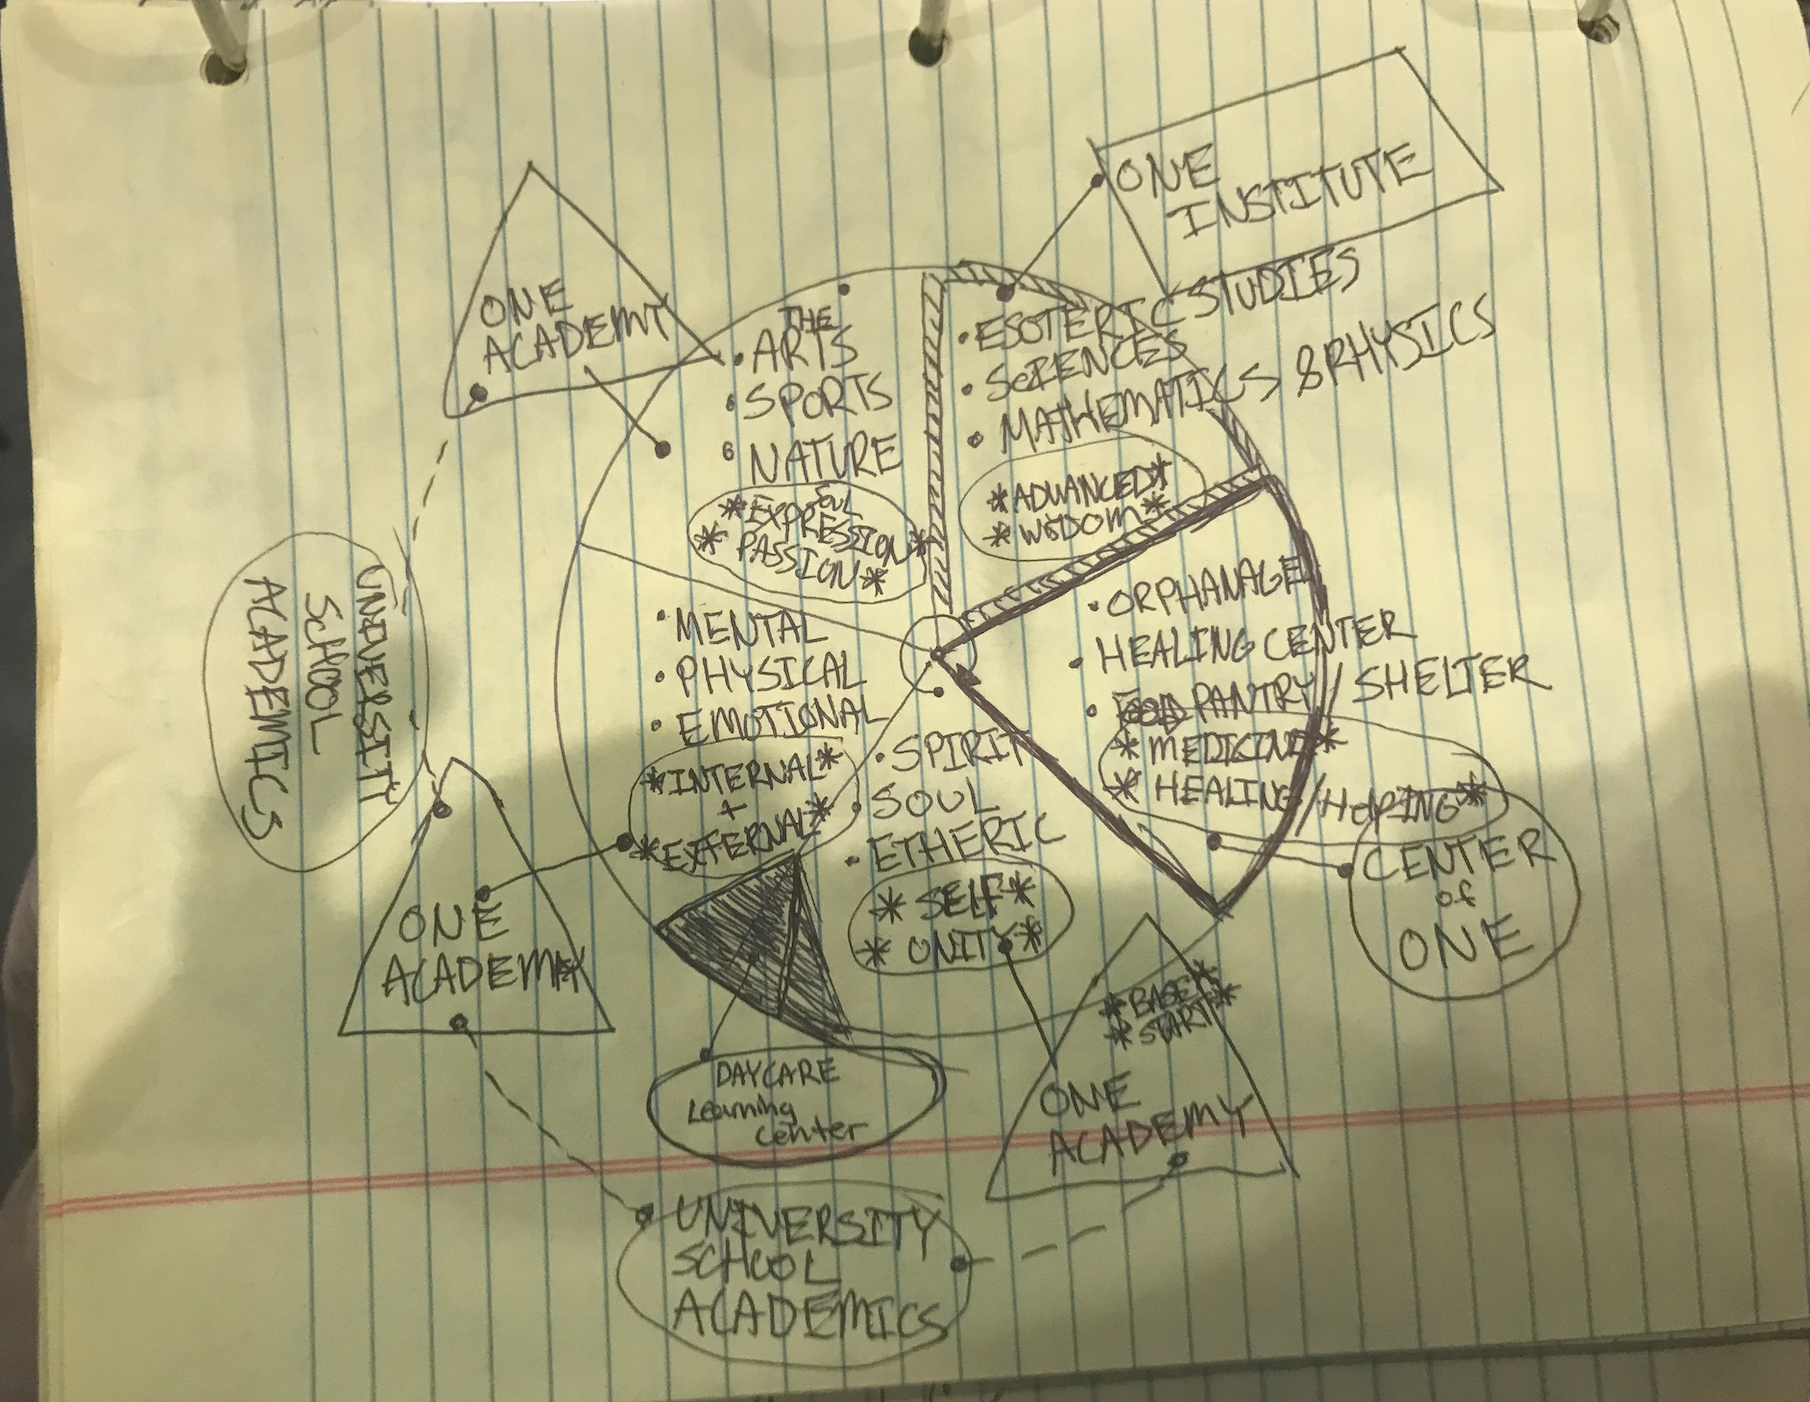 ONE
INSTITUTE
ONE
ACADEMY
THE
• ARTS
• SPORTS
• NATURE
*SOUL
EXPRESSION*
* PASSION *
• ESOTERIC STUDIES
• SCIENCES
• MATHEMATICS & PHYSICS
*ADVANCED*
*WISDOM*
UNIVERSITY
SCHOOL
ACADEMICS
• MENTAL
• PHYSICAL
• EMOTIONAL
*INTERNAL*
+
*EXTERNAL*
• ORPHANAGE
• HEALING CENTER
• FOOD PANTRY / SHELTER
*MEDICINE*
* HEALING / HELPING*
• SPIRIT
• SOUL
• ETHERIC
* SELF *
* UNITY *
CENTER
of
ONE
ONE
ACADEMY
*BASE*
*START*
ONE
ACADEMY
DAYCARE
Learning
Center
UNIVERSITY
SCHOOL
ACADEMICS